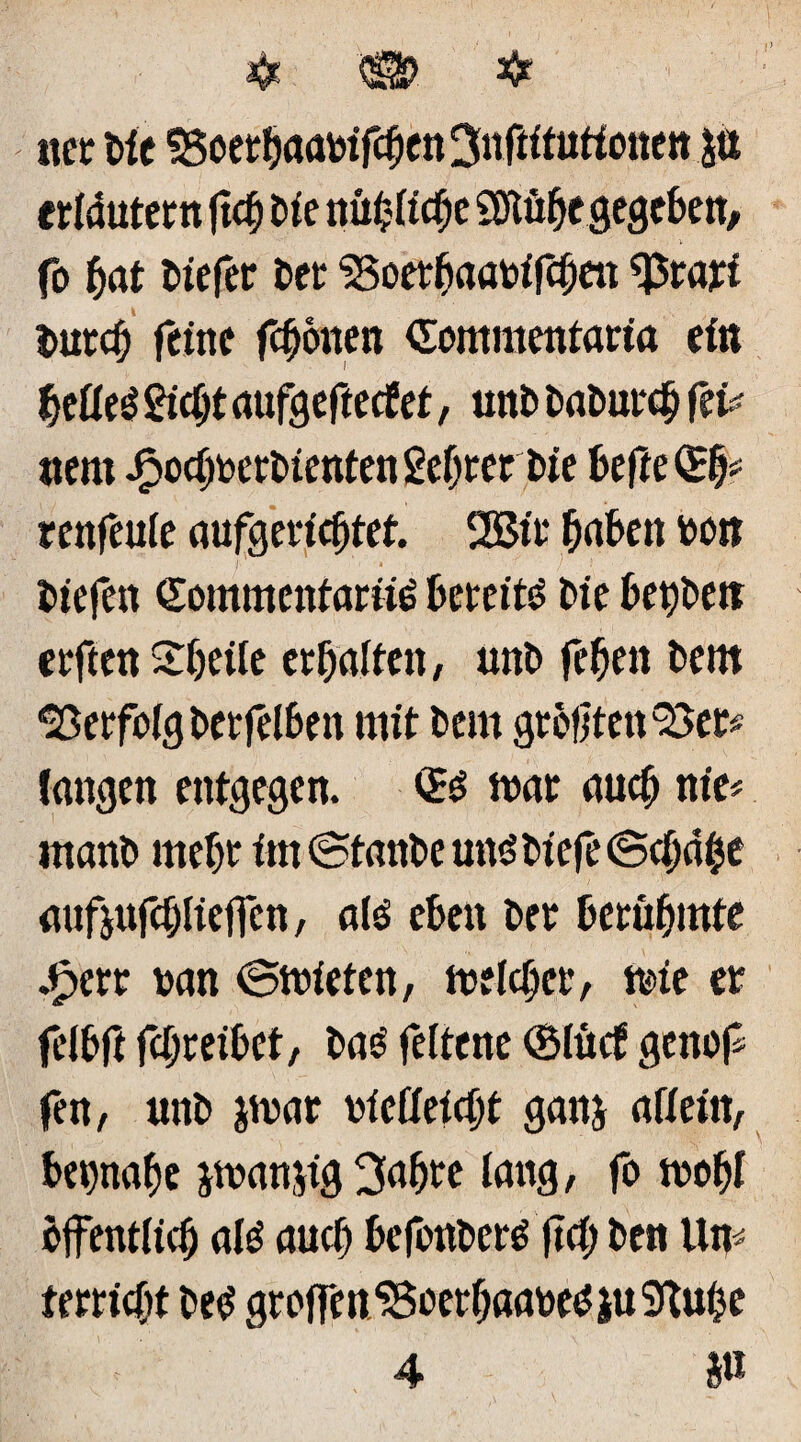 ner die Boerhaavischen Institutionen zu
erläutern sich die nützliche Mühe gegeben,
so hat dieser der Boerhaavischen Praxi
durch seine schönen Commentaria ein
helles Licht aufgestecket, und dadurch sei-
nem Hochverdienten Lehrer die beste Eh-
renseule aufgerichtet. Wir haben von
diesen Commentariis bereits die beyden
ersten Theile erhalten, und sehen dem
Verfolg derselben mit dem größten Ver-
langen entgegen. Es war auch nie-
mand mehr im Stande uns diese Schätze
aufzuschliessen, als eben der berühmte
Herr van Swieten, welcher, wie er
selbst schreibet, das seltene Glück genos-
sen, und zwar vielleicht ganz allein,
beynahe zwanzig Jahre lang, so wohl
öffentlich als auch besonders sich den Un-
terricht des grossen Boerhaaves zu Nutze
4 zu